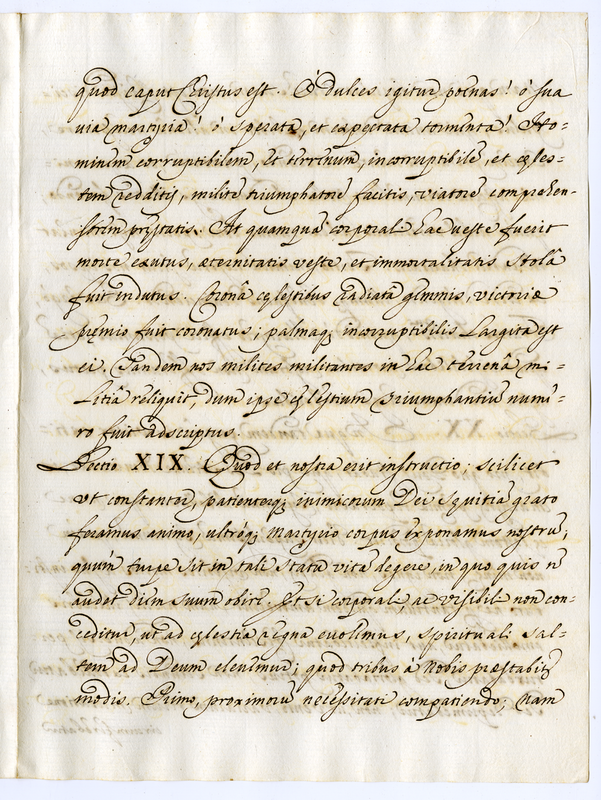 quod caput Christus est. O dulces igitur poenas! ó sua
via martyria! ó sperata, et expectata tormenta! Ho=
minem corruptibilem, et terrenum, incorruptibilẽ, et cęles=
tem redditis, militẽ triumphatorẽ facitis, viatorẽ comprehen=
sorem pręstatis. At quamquã corporali hac veste fuerit
morte exutus, æternitatis veste, et immortalitatis Stolâ
fuit indutus. Coronâ cęlestibus radiata gemmis, victoriæ
pręmio fuit coronatus; palmaq; incorruptibilis Largita est
ei. Tandem nos milites militantes in hac terrenâ mi=
litiâ reliquit, dum ipse cęlestium triumphantiũ nume=
ro fuit adscriptus.
Lectio XIX. Quod et nostra erit instructio; scilicet
ut constanter, patienterq; inimicorum Dei sęvitiã grato
feramus animo, ultróq; Martyrio corpus exponamus nostrũ;
quùm turpe sit in tali statu vitã degere, in quo quis nõ
audet diem suum obire. Et si corporali, ac visibili non con=
ceditur, ut ad cęlestia regna evolemus, spirituali sal=
tem ad Deum elevemur; quod tribus à nobis præstabitur
modis. Primo, proximorũ necessitati compatiendo; nam